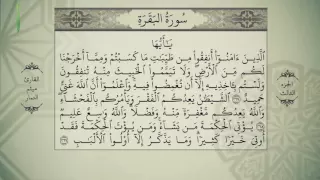 سُورَةُ البَقَرَةِ
يَٰٓأَيُّهَا
ٱلَّذِينَ ءَامَنُوٓا۟ أَنفِقُوا۟ مِن طَيِّبَٰتِ مَا كَسَبْتُمْ وَمِمَّآ أَخْرَجْنَا
لَكُم مِّنَ ٱلْأَرْضِ وَلَا تَيَمَّمُوا۟ ٱلْخَبِيثَ مِنْهُ تُنفِقُونَ
وَلَسْتُم بِـَٔاخِذِيهِ إِلَّآ أَن تُغْمِضُوا۟ فِيهِ وَٱعْلَمُوٓا۟ أَنَّ ٱللَّهَ غَنِىٌّ
حَمِيدٌ ٱلشَّيْطَٰنُ يَعِدُكُمُ ٱلْفَقْرَ وَيَأْمُرُكُم بِٱلْفَحْشَآءِ
وَٱللَّهُ يَعِدُكُم مَّغْفِرَةً مِّنْهُ وَفَضْلًا وَٱللَّهُ وَٰسِعٌ عَلِيمٌ
يُؤْتِى ٱلْحِكْمَةَ مَن يَشَآءُ وَمَن يُؤْتَ ٱلْحِكْمَةَ فَقَدْ
أُوتِىَ خَيْرًا كَثِيرًا وَمَا يَذَّكَّرُ إِلَّآ أُو۟لُوا۟ ٱلْأَلْبَٰبِ
الجزء
الثالث
القارئ